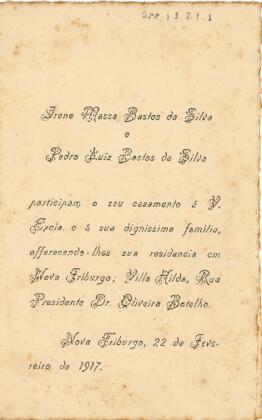 Irene Massa Bastos da Silva
e
Pedro Luiz Bastos da Silva
participam o seu casamento á V.
Excia. e á sua dignissima familia,
offerecendo-lhes sua residencia em
Nova Friburgo; Villa Hilda, Rua
Presidente Dr. Oliveira Botelho.
Nova Friburgo, 22 de Feve-
reiro de 1917.